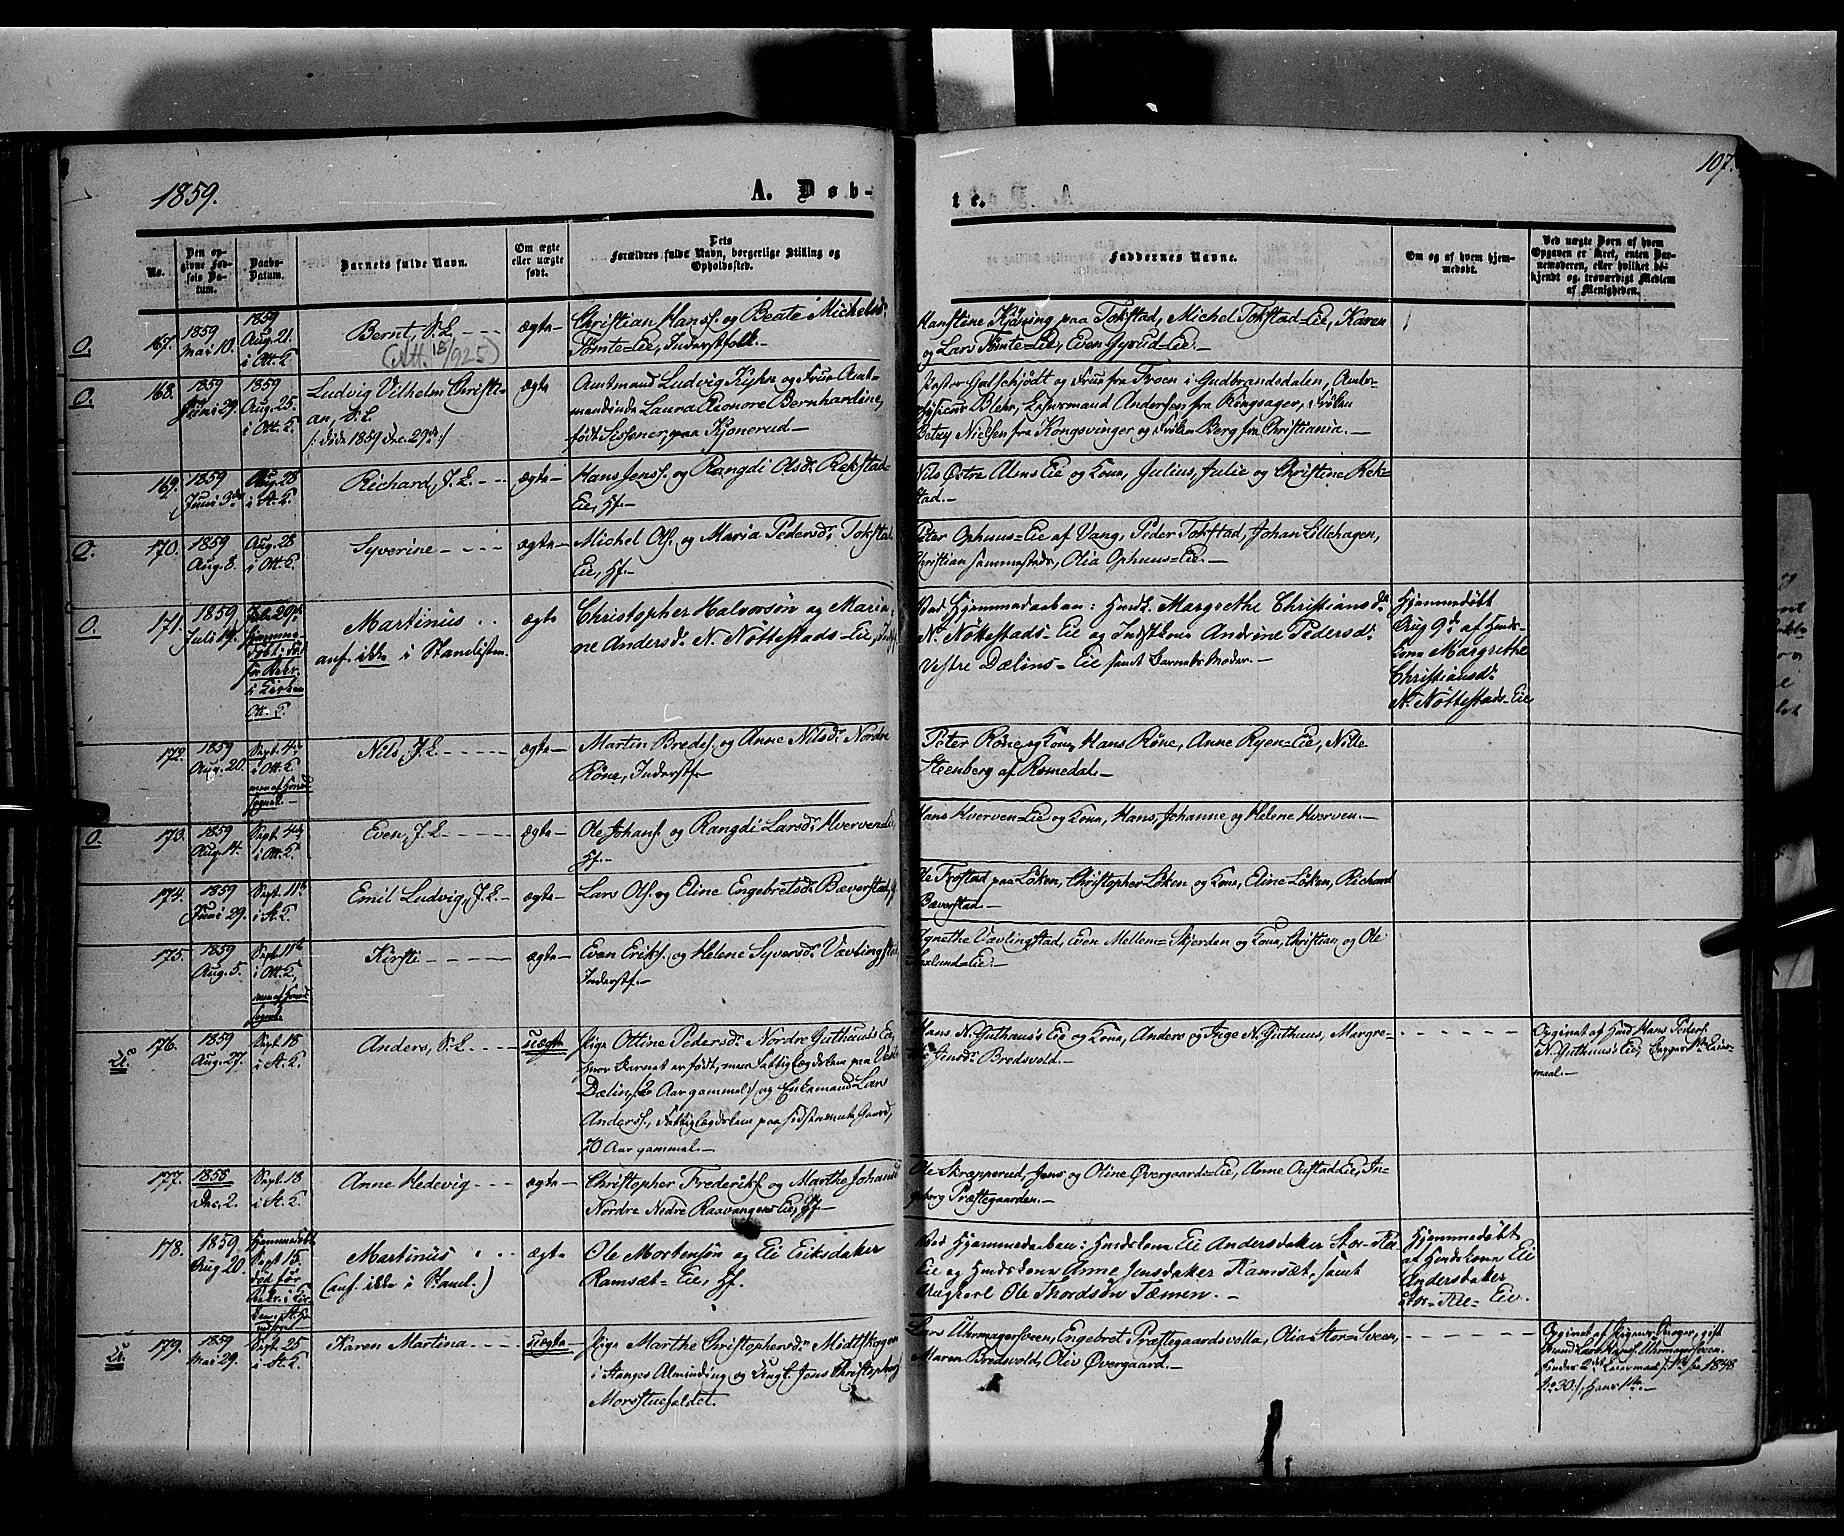 1859.
A. Døb-
te.
107.
No.
Den op-
givne Fød-
sels Da-
tum.
Daabs-
Datum.
Barnets fulde Navn.
Om ægte
eller uægte
født.
Dets
Forældres fulde Navn, borgerlige Stilling og
Opholdssted.
Faddernes Navne.
Om og af hvem hjem-
medøbt.
Ved uægte Born af hvem
Opgaven er skeet, enten Bar-
nemoderen, eller hvilket be-
kjendt og troværdigt Medlem
af Menigheden.
O.
167.
1859
Mai 10.
1859
Aug. 21.
i Ott. K.
Bernt, S. L.
(Att. 18/925)
ægte
Christian Hans. og Beate Michelsd.
Tomte-Eie, Inderstfolk.-
Hanstene Kjøning paa Tokstad, Michel Tokstad-Eie, Karen
og Lars Tomte-Eie, Even Gyrud-Eie.-
O.
168.
1859
Juni 29.
1859
Aug. 25.
i Ott. K.
Ludvig Vilhelm Christi-
an, S. L.
/: død 1859 Dec. 29de :/
ægte
Amtmand Ludvig Kyhn og Frue Amt-
mandinde Laura Eleonore Bernhardine,
født Sissener, paa Kjonerud.-
Pastor Halschjødt og Frue fra Froen i Gudbrandsdalen, Amts-
Blehr, Andersen fra Ringsager, Frøken
Betzy Nielsen fra Kongsvinger og Frøken Berg fra Christiania.-
169.
1859
Juni 9de
Aug. 28
i St. K.
Richard, J. L.
ægte
Hans Jens. og Rangdi Olsd. Rekstad-
Eie, Hf.-
Nils Østre Alens Eie og Kona, Julius, Julie og Christine Rek-
stad.-
O.
170.
1859
Aug. 8.
Aug. 28
i Ott. K.
Syverine
ægte
Michel Ols. og Maria Pedersd. Tokstad-
Eie, Hf.-
Peter Ophuus-Eie af Vang, Peder Tokstad, Johan Lillehagen,
Christian sammesteds, Olia Ophuus-Eie.-
O.
171.
1859
Juli 14.
i Kirken
Ott. K.
Martinus
anf. ikke i Stamlisten.
ægte
Christopher Halvorsøn og Maria-
ne Andersd. N. Nøttestads-Eie,
Ved Hjemmedaaben: Huusk. Margrethe Christiansd.
N. Nøttestads-Eie og Indstkone Andrine Pedersd.
Vestre Dælins-Eie samt Barnets Moder.-
Hjemmedøbt
Aug 9de af Huus-
kone Margrethe
Christiansd.
N. Nøttestads-Eie
172.
1859
Aug. 20.
Sept. 4de
i Ott. K.
men af Hoved-
sognet.-
Nils, J. L.
ægte
Martin Bredes. og Anne Nilsd. Nordre
Rone, Inderstf.-
Peter Rone og Kona, Hans Rone, Anne Ryen-Eie, Nils
Steenberg af Romedal.-
O.
173.
1859
Aug. 14.
Sept. 4de
i Ott. K.
Even, J. L.
ægte
Ole Johans. og Rangdi Larsd. Hverven-Eie
Hf.-
Hans Hverven-Eie og Kona, Hans, Johanne og Helene Hverven.-
174.
1859
Juni 29.
Sept. 11te
i St. K.
Emil Ludvig, J. L.
ægte
Lars Ols. og Eline Engebretsd. Bæverstad,
Ole Frostad paa Løken, Christopher Løken og Kona, Eline Løken, Richard
Bæverstad.-
175.
1859
Aug. 5.
Sept. 11te
i Ott. K.
men af Hoved-
sognet.
Kirsti
ægte
Even Eriks. og Helene Syversd. Vævlingstad
Inderstf.-
Agnethe Vævlingstad, Even Mellem-Skjerden og Kona, Christian og Ole
-Eie.-
U.
176.
1859
Aug. 27.
Sept. 18
i St. K.
Anders, S. L.
uægte
Pige Ottine Pedersd. Nordre Guthuus's Eie,
hvor Barnet er født, men Fattiglægdslem paa Vestre
Dælin, Aar gammel:/ og Enkemand Lars
Anders., Fattiglægdslem paa sidstnævnte Gaard,
70 Aar gammel.-
Hans N. Guthuus's Eie og Kona, Anders og Inge N. Guthuus, Margre-
the Bredvold.-
Opgivet af Huusm. Hans Peders.
N. Guthuus's Eie; Begges 1ste Leier-
maal.-
177.
1858
Dec. 2.
Sept. 18
i St. K.
Anne Hedevig
ægte
Christopher Frederiks. og Marthe Johansd.
Nordre Nedre Raavangens Eie, Hf.-
Ole Skrapperud, Jens og Oline Øvergaards-Eie, Anne Aufstad-Eie, In-
geborg Præstegaarden.-
178.
1859
Aug 20.
Hjemmedøbt
Sept. 15.
død før
Martinus
(anf. ikke i Staml.)
ægte
Ole Mortensøn og Eli Eriksdatter
Ramsæt-Eie, Hf.
Ved Hjemmedaaben: Huuskone Eli Andersdatter Stor-Ree-
Eie og Huuskone Anne Jensdatter Ramsæt, samt
Ungkarl Ole Thordsøn Tømren.-
Hjemmedøbt
af Huuskone Eli
Andersdatter
Stor-Ree-Eie.
U.
179.
1859
Mai 29.
Sept. 25
i St. K.
Karen Martina
uægte
Pige Marthe Christophersd. Midtskogen
i Stanges Alminding og Ungk. Jens Christophers.
Morstuefaldet.
Lars Uhrmagersveen, Engebret Præstegaardsvolla, Olia Stor-Sveen,
Maren Bredvold, Oliv Øvergaard.-
Opgivet af Pigens Svoger, gift
Huusm. Lars Hans. Uhrmagersveen.
Hendes 2det Leiermaal /: fra 1848
No 30:/, Hans 1ste.-